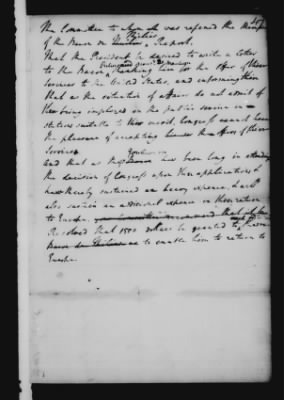 The Committee to whom was referred the Memorial
of the Baron de
Report,
That the President be desired to write a letter
to the Baron thanking him for the offer of their
Services to the United States, and informing them
that as the situation of affairs do not admit of
their being employed in the public service in
stations suitable to their merit, Congress cannot have
the pleasure of accepting the offer of their
Services.
And that as the have been long in attending
the decision of Congress upon their applications &
have thereby sustained an heavy expence, & will
also sustain an additional expence in their return
to Europe.
Resolved that 1500 dollars be granted to
Baron to enable him to return to
Europe.